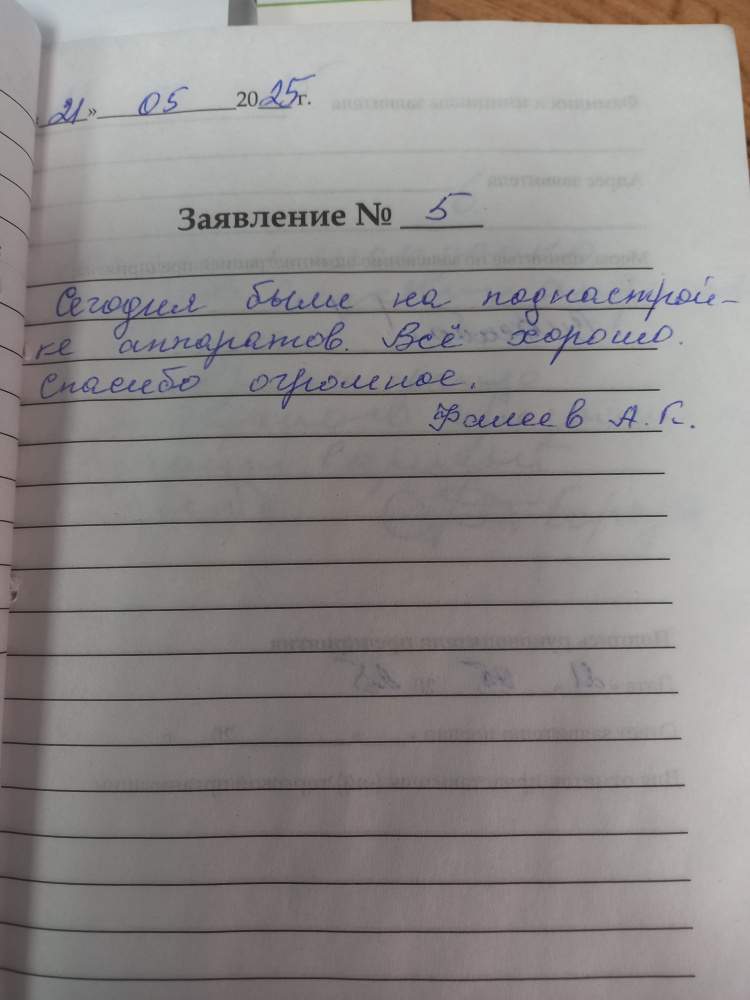 21» 05 2025г.
Заявление № 5
Сегодня были на поднастрой-
ке аппаратов. Всё хорошо.
Спасибо огромное.
Фалеев А.Г.